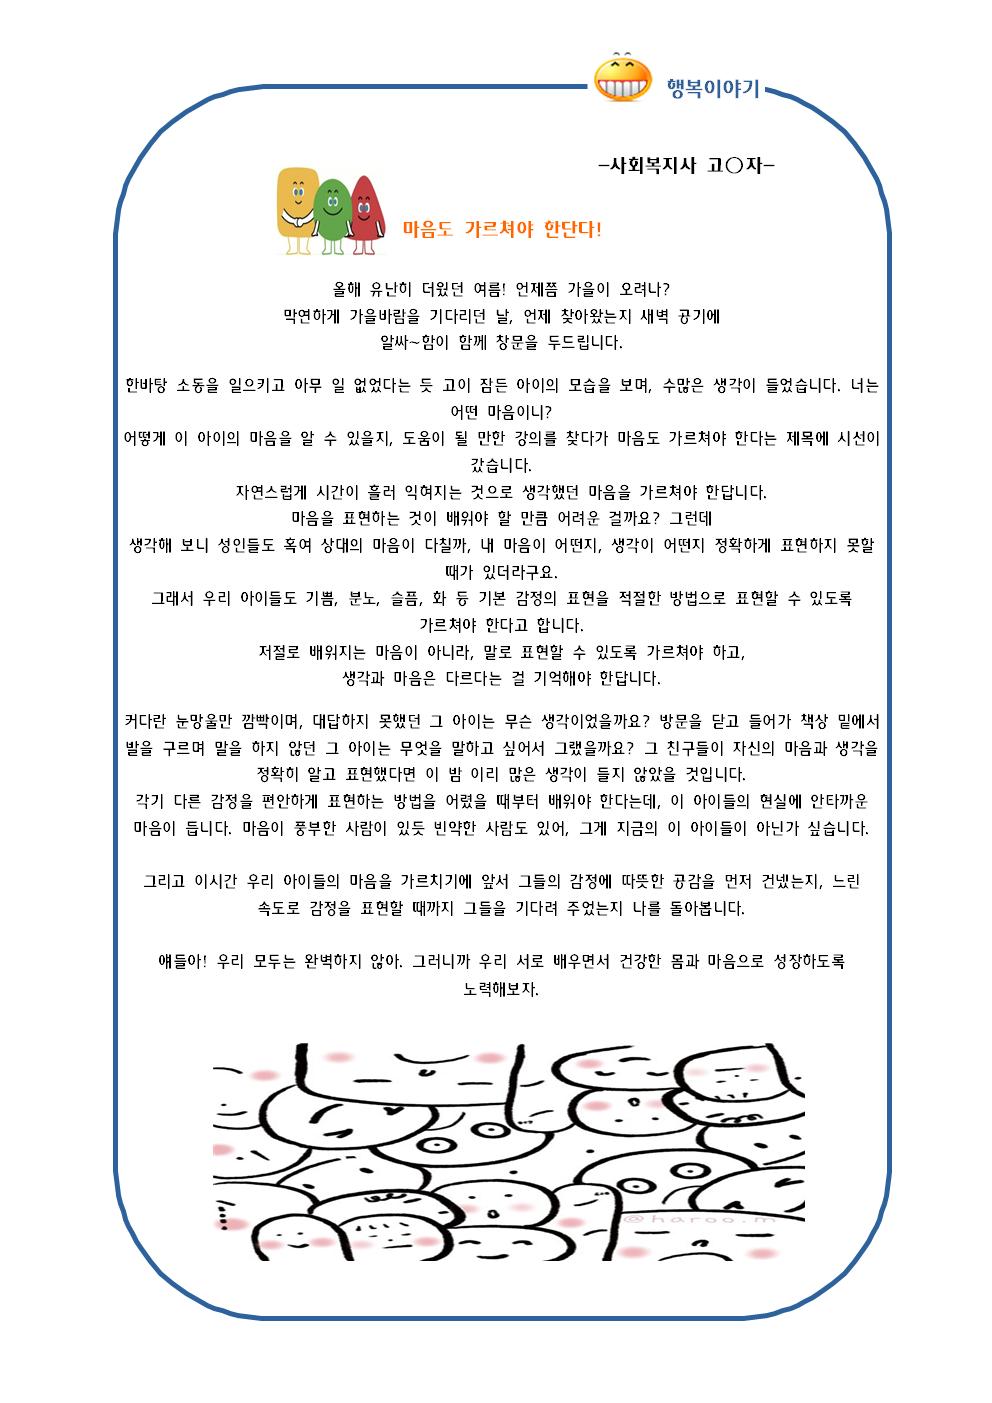 행복이야기
-사회복지사 고○자-
마음도 가르쳐야 한단다!
올해 유난히 더웠던 여름! 언제쯤 가을이 오려나?
막연하게 가을바람을 기다리던 날, 언제 찾아왔는지 새벽 공기에
알싸~함이 함께 창문을 두드립니다.
한바탕 소동을 일으키고 아무 일 없었다는 듯 고이 잠든 아이의 모습을 보며, 수많은 생각이 들었습니다. 너는
어떤 마음이니?
어떻게 이 아이의 마음을 알 수 있을지, 도움이 될 만한 강의를 찾다가 마음도 가르쳐야 한다는 제목에 시선이
갔습니다.
자연스럽게 시간이 흘러 익혀지는 것으로 생각했던 마음을 가르쳐야 한답니다.
마음을 표현하는 것이 배워야 할 만큼 어려운 걸까요? 그런데
생각해 보니 성인들도 혹여 상대의 마음이 다칠까, 내 마음이 어떤지, 생각이 어떤지 정확하게 표현하지 못할
때가 있더라구요.
그래서 우리 아이들도 기쁨, 분노, 슬픔, 화 등 기본 감정의 표현을 적절한 방법으로 표현할 수 있도록
가르쳐야 한다고 합니다.
저절로 배워지는 마음이 아니라, 말로 표현할 수 있도록 가르쳐야 하고,
생각과 마음은 다르다는 걸 기억해야 한답니다.
커다란 눈망울만 깜빡이며, 대답하지 못했던 그 아이는 무슨 생각이었을까요? 방문을 닫고 들어가 책상 밑에서
발을 구르며 말을 하지 않던 그 아이는 무엇을 말하고 싶어서 그랬을까요? 그 친구들이 자신의 마음과 생각을
정확히 알고 표현했다면 이 밤 이리 많은 생각이 들지 않았을 것입니다.
각기 다른 감정을 편안하게 표현하는 방법을 어렸을 때부터 배워야 한다는데, 이 아이들의 현실에 안타까운
마음이 듭니다. 마음이 풍부한 사람이 있듯 빈약한 사람도 있어, 그게 지금의 이 아이들이 아닌가 싶습니다.
그리고 이시간 우리 아이들의 마음을 가르치기에 앞서 그들의 감정에 따뜻한 공감을 먼저 건넸는지, 느린
속도로 감정을 표현할 때까지 그들을 기다려 주었는지 나를 돌아봅니다.
얘들아! 우리 모두는 완벽하지 않아. 그러니까 우리 서로 배우면서 건강한 몸과 마음으로 성장하도록
노력해보자.
@haroo.m